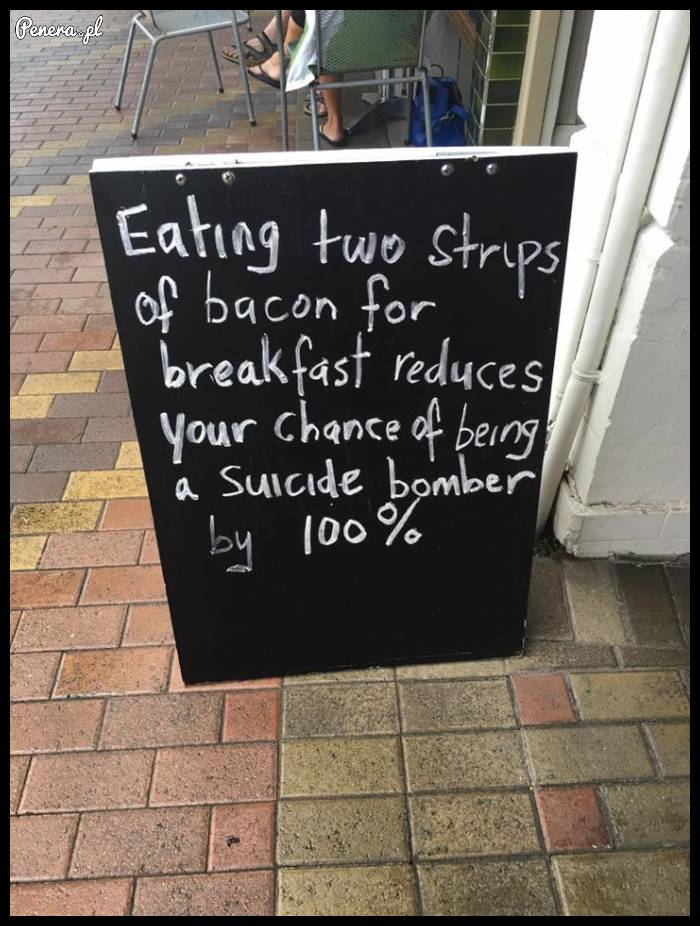 Penera.pl
Eating two strips
of bacon for
breakfast reduces
your chance of being
a suicide bomber
by 100%